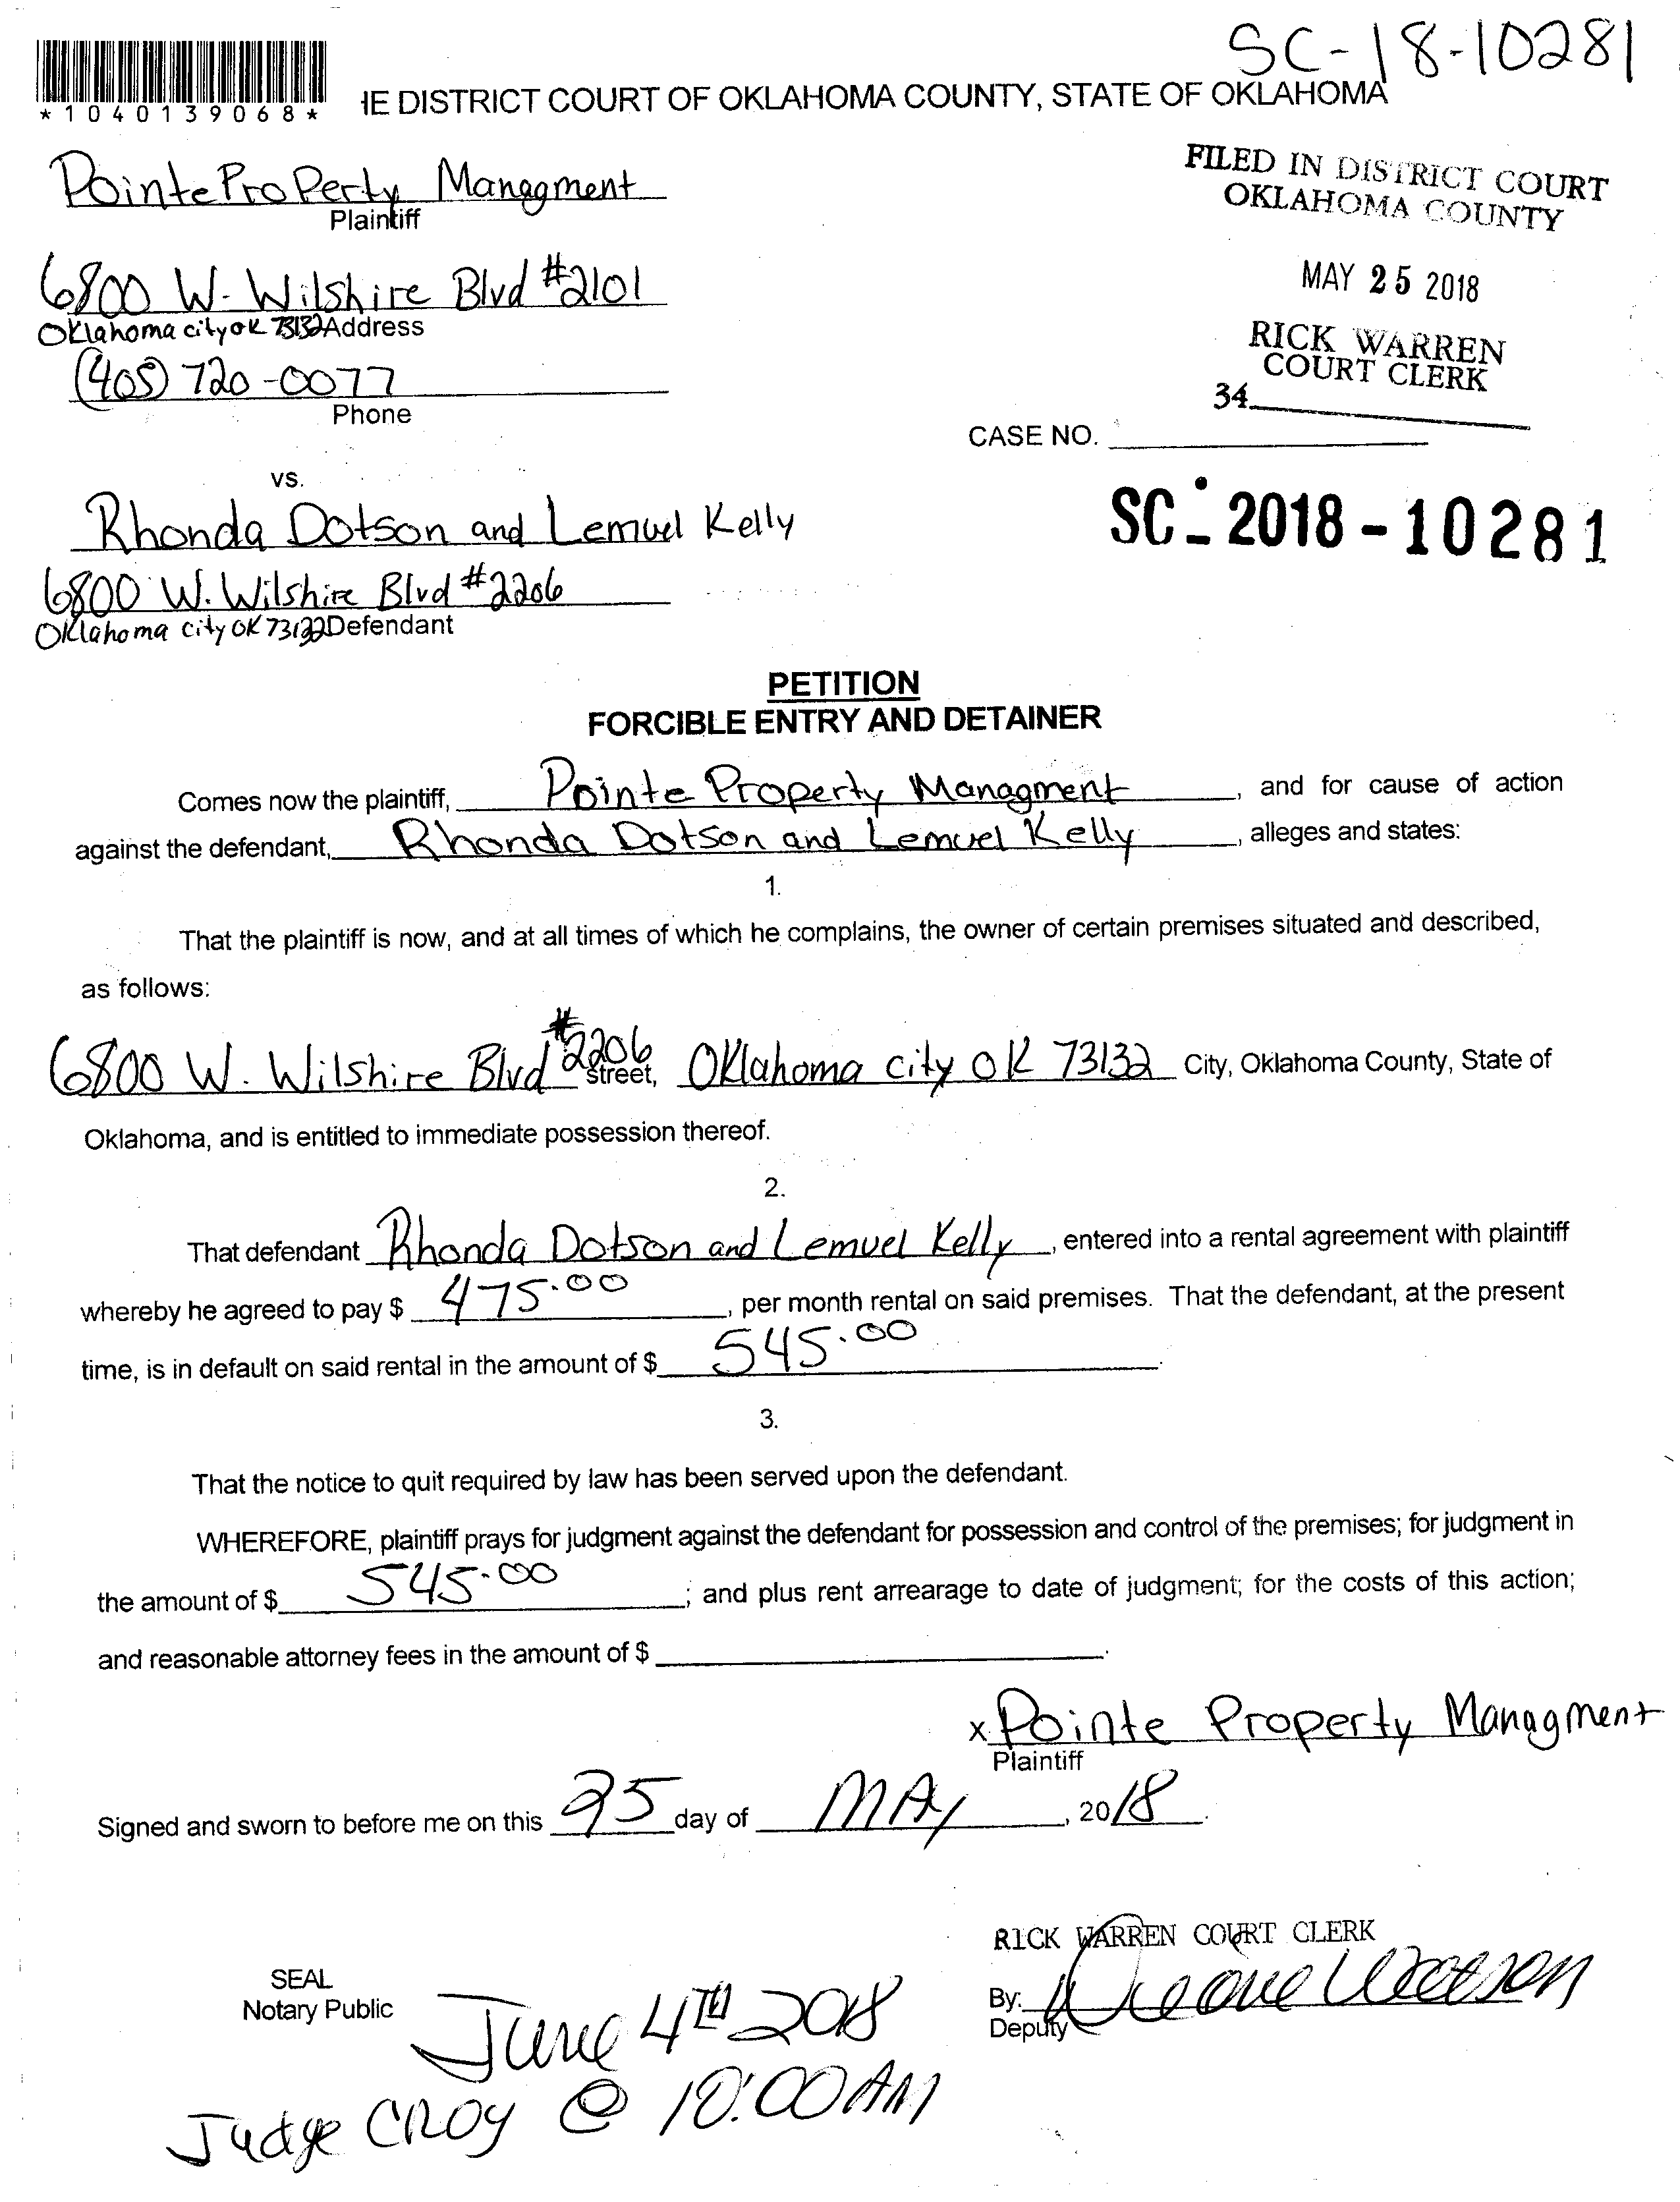 SC-18-10281
*1040139068*
IE DISTRICT COURT OF OKLAHOMA COUNTY, STATE OF OKLAHOMA
Pointe ProPerty Managment
Plaintiff
FILED IN DISTRICT COURT
OKLAHOMA COUNTY
6800 W. Wilshire Blvd #2101
Oklahoma city ok 73132 Address
MAY 25 2018
(405) 720-0077
Phone
RICK WARREN
COURT CLERK
34
CASE NO.
vs.
Rhonda Dotson and Lemuel Kelly
SC-2018-10281
6800 W. Wilshire Blvd #2206
Oklahoma city OK 73132 Defendant
PETITION
FORCIBLE ENTRY AND DETAINER
Comes now the plaintiff, Pointe Property Managment, and for cause of action
against the defendant, Rhonda Dotson and Lemuel Kelly, alleges and states:
1.
That the plaintiff is now, and at all times of which he complains, the owner of certain premises situated and described,
as follows:
6800 W. Wilshire Blvd #2206 street, Oklahoma city OK 73132 City, Oklahoma County, State of
Oklahoma, and is entitled to immediate possession thereof.
2.
That defendant Rhonda Dotson and Lemuel Kelly, entered into a rental agreement with plaintiff
whereby he agreed to pay $ 475.00, per month rental on said premises. That the defendant, at the present
time, is in default on said rental in the amount of $ 545.00.
3.
That the notice to quit required by law has been served upon the defendant.
WHEREFORE, plaintiff prays for judgment against the defendant for possession and control of the premises; for judgment in
the amount of $ 545.00; and plus rent arrearage to date of judgment; for the costs of this action;
and reasonable attorney fees in the amount of $ .
x Pointe Property Managment
Plaintiff
Signed and sworn to before me on this 25 day of MAy, 2018.
RICK WARREN COURT CLERK
SEAL
Notary Public
By:
Deputy
June 4TH 2018
Judge CROY @ 10:00 AM